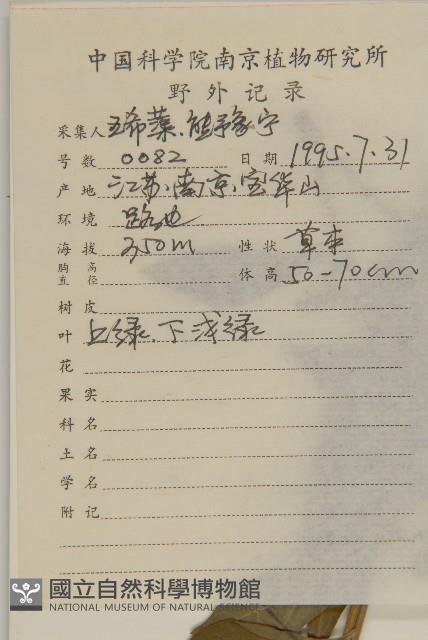 中国科学院南京植物研究所
野外记录
采集人 王希蕖、熊豫宁
号数 0082 日期 1995.7.31
产地 江苏.南京.宝华山
环境 路边
海拔 250m 性状 草本
胸高直径 体高 50-70cm
树皮
叶 上绿.下浅绿
花
果实
科名
土名
学名
附记
國立自然科學博物館
NATIONAL MUSEUM OF NATURAL SCIENCE